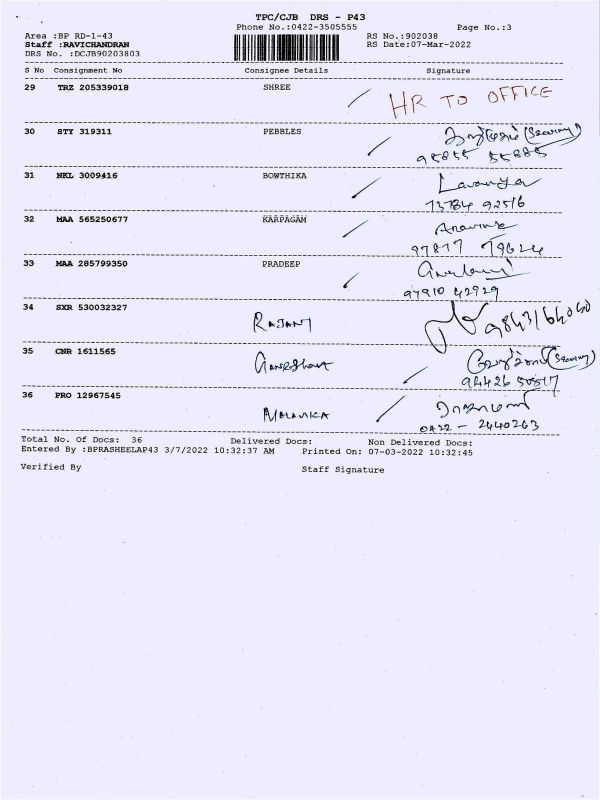 TPC/CJB DRS - P43
Phone No.:0422-3505555 Page No.:3
Area :BP RD-1-43 RS No.:902038
Staff :RAVICHANDRAN RS Date:07-Mar-2022
DRS No. :DCJB90203803
S No Consignment No Consignee Details Signature
29 TRZ 205339018 SHREE HR TO OFFICE
30 STY 319311 PEBBLES (Security)
95855 55885
31 NKL 3009416 BOWTHIKA Lavanya
73784 92516
32 MAA 565250677 KARPAGAM Aravind
97877 79624
33 MAA 285799350 PRADEEP
97910 42929
34 SXR 530032327 RAJANI 9843164060
35 CNR 1611565 (Security)
94426 50517
36 PRO 12967545 MALAVIKA ராஜாமணி
0422 - 2440263
Total No. Of Docs: 36 Delivered Docs: Non Delivered Docs:
Entered By :BPRASHEELAP43 3/7/2022 10:32:37 AM Printed On: 07-03-2022 10:32:45
Verified By Staff Signature